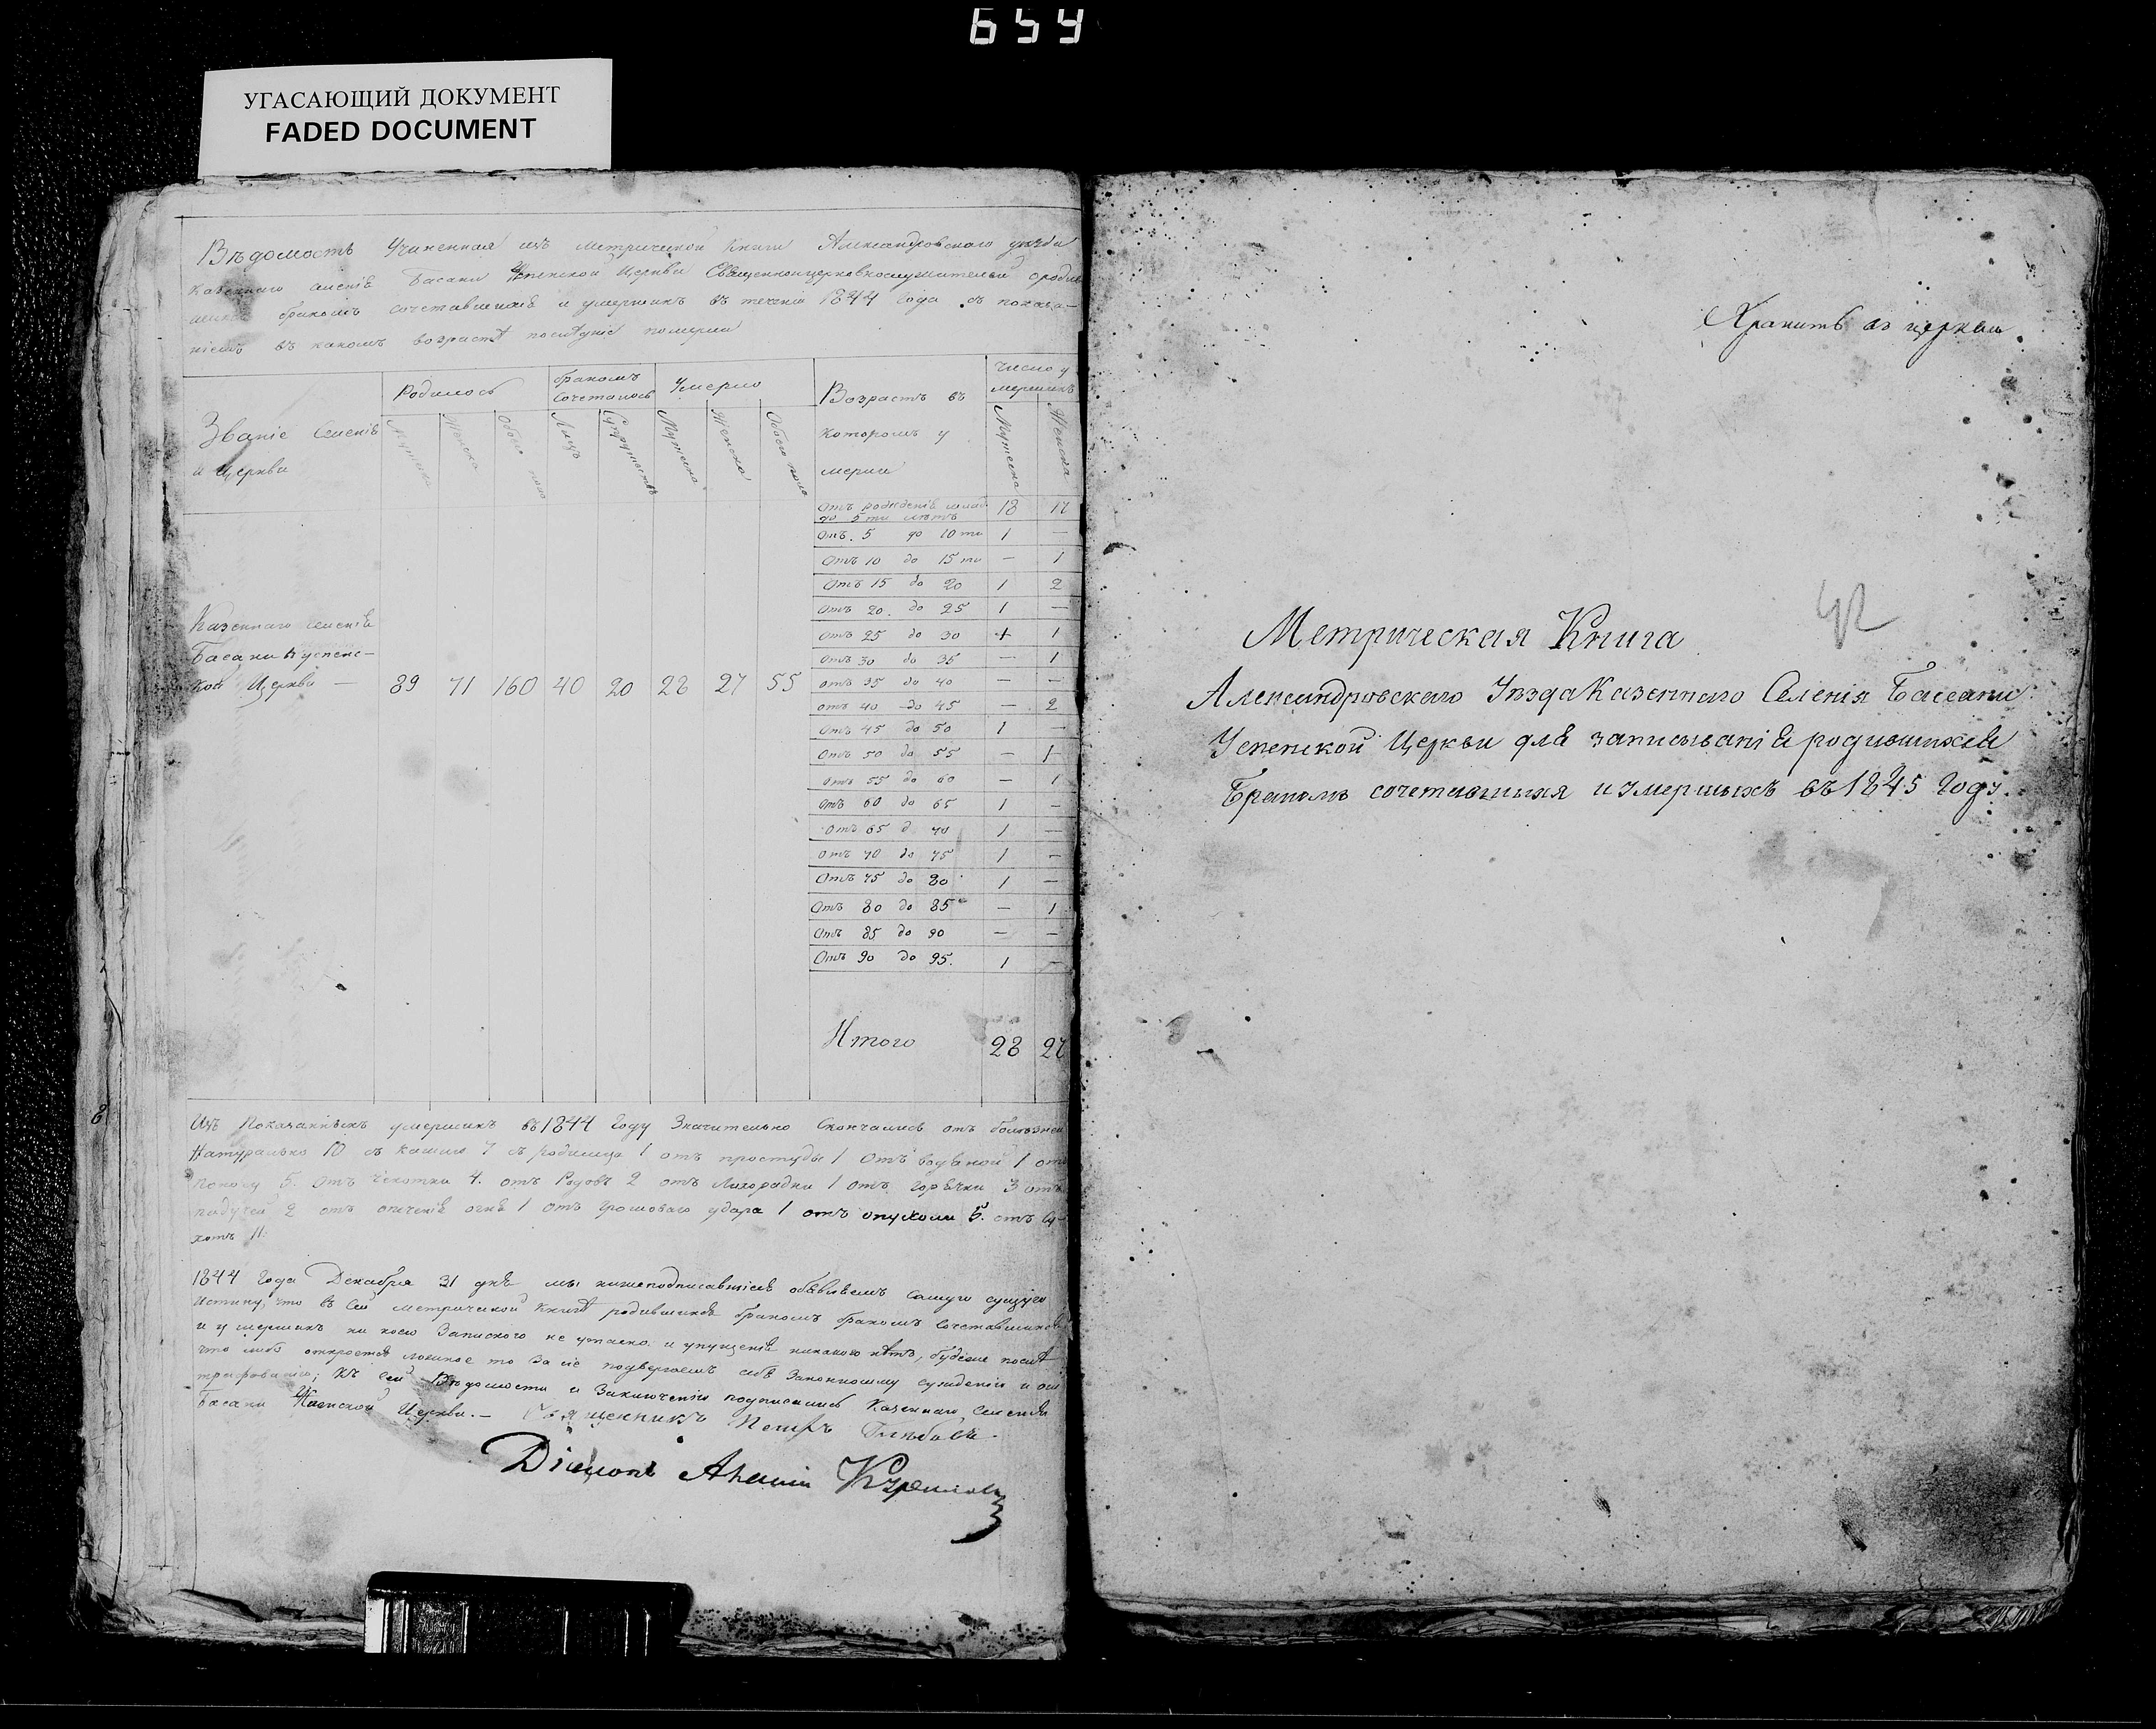 659
УГАСАЮЩИЙ ДОКУМЕНТ
FADED DOCUMENT
Вѣдомость Учиненная изъ метрической книги Александровскаго уѣзда
казеннаго селенія Басани Успенской Церкви Священноцерковнослужителями о родив
шихся бракомъ сочетавшихся и умершихъ въ теченіи 1844 года съ показа-
ніемъ въ какомъ возрастѣ послѣдніе померли
Званіе Селенія
и Церкви
Родилось
бракомъ
Сочеталось
Умерло
Возрастъ въ
которомъ у
мерли
число у
мершихъ
Мужеска
Женска
Обоего пола
Лицъ
Супружествъ
Мужеска
Женска
Обоего пола
Мужеска
Женска
Отъ рожденія
до 5ти лѣтъ 18 17
Отъ 5 до 10ти 1 —
Отъ 10 до 15ти — 1
Отъ 15 до 20 1 2
Отъ 20 до 25 1 —
Отъ 25 до 30 + 1
Отъ 30 до 35 — 1
отъ 35 до 40 — —
отъ 40 до 45 — 2
Отъ 45 до 50 1 —
Отъ 50 до 55 — 1
Отъ 55 до 60 — 1
Отъ 60 до 65 1 —
Отъ 65 д 70 1 —
Отъ 70 до 75 1 —
Отъ 75 до 80 1 —
Отъ 80 до 85 — 1
Отъ 85 до 90 — —
Отъ 90 до 95. 1 —
Казеннаго Селенія
Басани Успенс-
кой Церкви — 89 71 160 40 20 28 27 55
Итого 28 27
Изъ Показанныхъ умершихъ въ 1844 Году Значительно Скончались отъ болѣзней
Натурально 10 съ кашлю 7 съ родимца 1 отъ простуды 1 Отъ водяной 1 отъ
поносу 5. Отъ Чехотки 4. отъ Родовъ 2 отъ Лихорадки 1 отъ горячки 3 отъ
падучей 2 отъ огня 1 отъ удара 1 отъ опухоли 5. отъ Су-
хотъ 11.
1844 Года Декабря 31 дня мы нижеподписавшіеся объявляемъ самую сущую
Истину, что въ Сей метрической книгѣ родившихся бракомъ бракомъ Сочетавшихся
и умершихъ ни кого не утаено и упущенія никакого нѣтъ, будеже послѣ
что либо откроется ложное то за сіе подвергаемъ себя Законному сужденію и
; Къ сей Вѣдомости и Заключенію подписались Казеннаго Селенія
Басани Церкви.— Священникъ Петръ
Діаконъ
Хранить въ церкви
42
Метрическая Книга
Александровскаго Уѣзда Казеннаго Селенія Басани
Успенской Церкви для записыванія родившихся
Бракомъ сочетавшихся и Умершихъ въ 1845 Году.